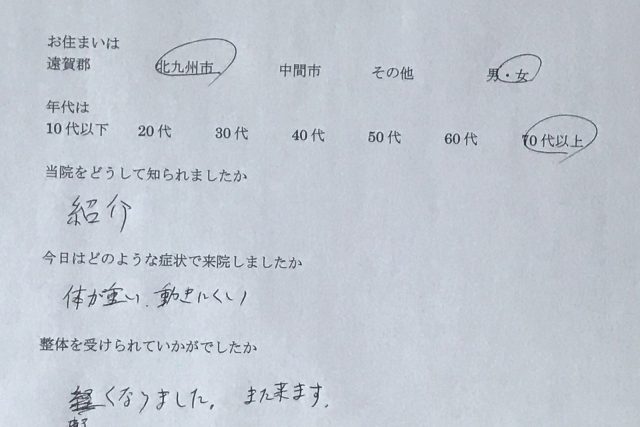 お住まいは
遠賀郡 北九州市 中間市 その他 男・女
年代は
10代以下 20代 30代 40代 50代 60代 70代以上
当院をどうして知られましたか
紹介
今日はどのような症状で来院しましたか
体が重い、動きにくい
整体を受けられていかがでしたか
くなりました。また来ます。
軽